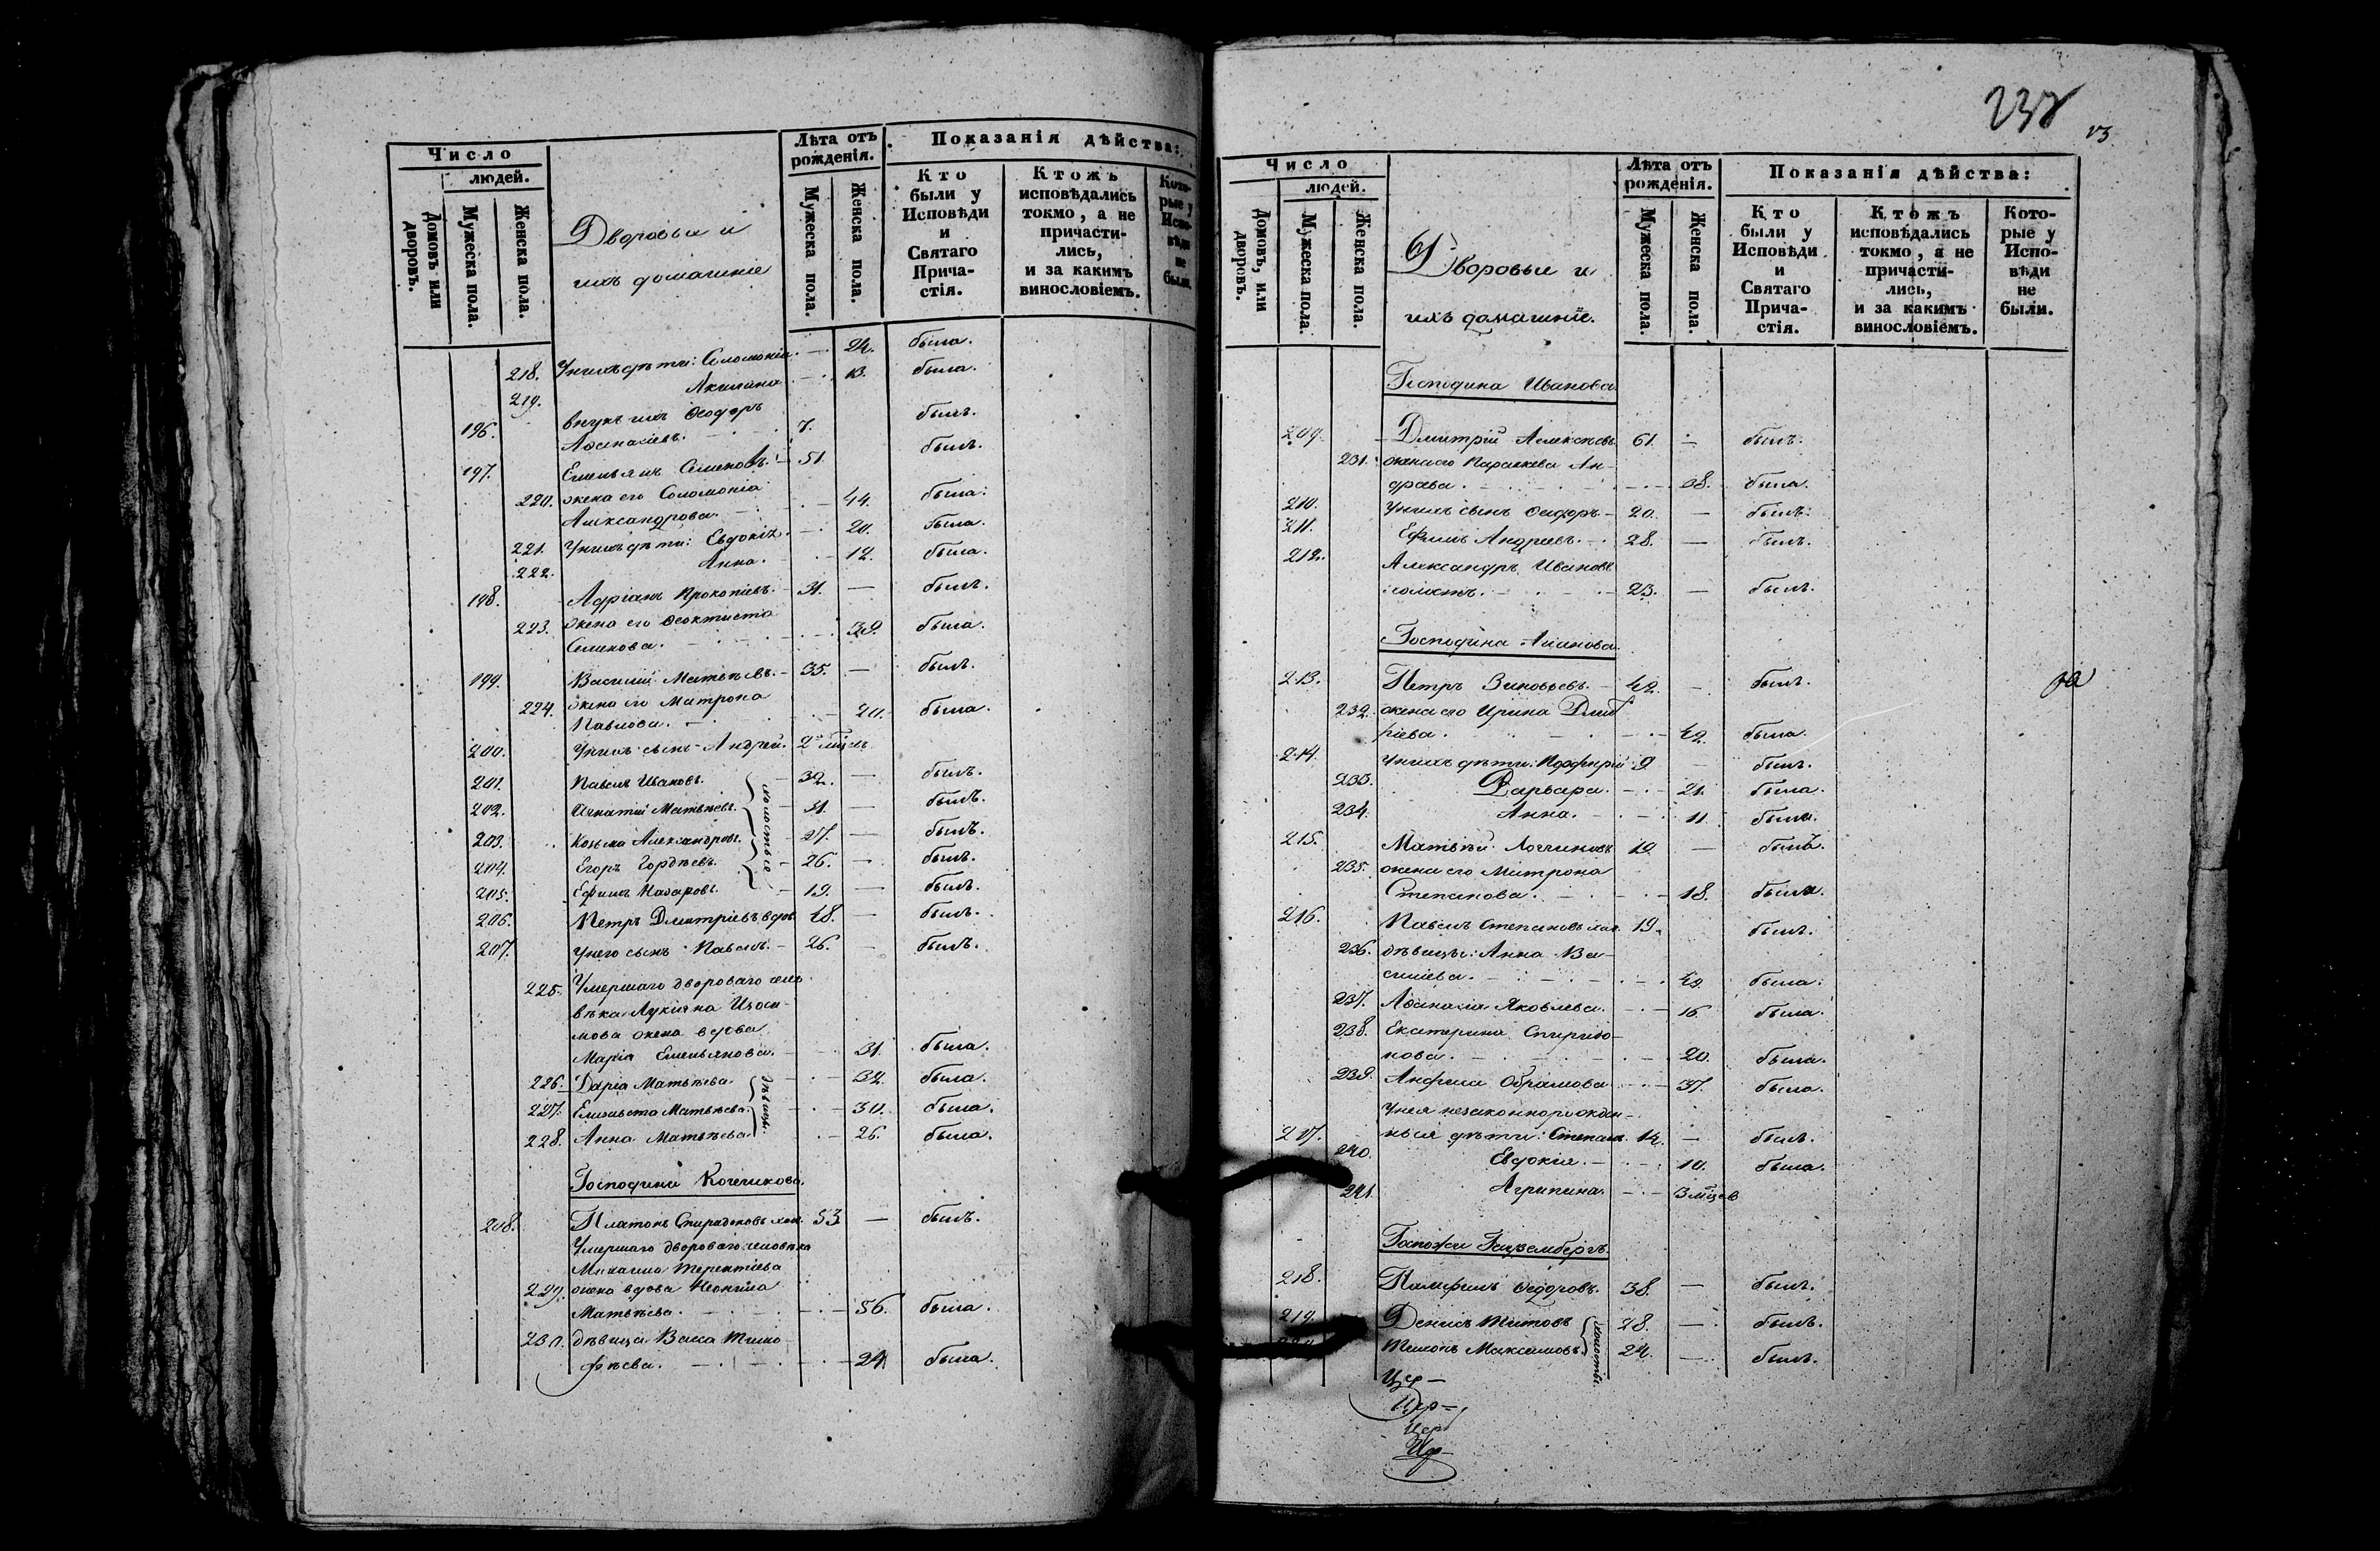 Число
людей.
Домовъ или дворовъ.
Мужеска пола.
Женска пола.
Дворовыи и
ихъ домашніе
Лѣта отъ рожденія.
Мужеска пола.
Женска пола.
Показанія дѣйства:
Кто были у Исповѣди и Святаго Прича-стія.
Ктожъ исповѣдались токмо, а не причасти-лись, и за какимъ винословіемъ.
Кото-рые у Испо-вѣди не были.
218. У нихъ дѣти: Соломонія. — 24. была.
219. Акилина — 13. была.
внукъ ихъ Ѳеодоръ
196. Аѳанасіевъ. 7. былъ.
197. Емельянъ Семеновъ. 51. былъ.
220. жена его Соломонія
Александрова. — 44. была.
221. У нихъ дѣти: Евдокія. — 20. была.
222. Анна. — 12. была.
198. Адріанъ Прокопіевъ. 31. — былъ.
223. жена его Ѳеоктиста
Семенова. — была.
199. Василій Матвѣевъ. — 35. — былъ.
224. жена его Матрона
Павлова. — 20. была.
200. У нихъ сынъ Андрей. 2
201. Павелъ Ивановъ. — 32. — былъ.
202. Игнатій Матвѣевъ. — 31. — былъ.
203. Козьма Александровъ. — 27. — былъ.
204. Егоръ Гордѣевъ. — 26. — былъ.
205. Ефимъ Назаровъ. — 19. — былъ.
холостые
206. Петръ Дмитріевъ вдов. 48. — былъ.
207. У него сынъ Павелъ. — 26. — былъ.
225. Умершаго двороваго чело-
вѣка Лукіяна Изоси-
мова жена вдова
Марія Емельянова. — 31. была.
226. Дарія Матвѣева. — 32. была.
227. Елизавета Матвѣева. — 30. была.
228. Анна Матвѣева. — 26. была.
дѣвицы.
Господина
208. Платонъ Спиридоновъ хол. 53. — былъ.
Умершаго двороваго человѣка
Михаила Терентіева
229. жена вдова Неонила
Матвѣева. — 56. была.
230. дѣвица Васса Тимо-
фѣева. — 24. была.
237
Число
людей.
Домовъ, или дворовъ.
Мужеска пола.
Женска пола.
Дворовые и
ихъ домашніе.
Лѣта отъ рожденія.
Мужеска пола.
Женска пола.
Показанія дѣйства:
Кто были у Исповѣди и Святаго Прича-стія.
Ктожъ исповѣдались токмо, а не причасти-лись, и за какимъ винословіемъ.
Кото-рые у Испо-вѣди не были.
Господина Иванова
209. Дмитрій Алексѣевъ 61. — былъ.
231. жена его Параскева Ан-
дреева. — 38. была.
210. У нихъ сынъ — 20. — былъ.
211. Ефимъ Андреевъ. 28. — былъ.
212. Александръ Ивановъ
холостъ. — 23. — былъ.
Господина
213. Петръ Зиновьевъ. — 42. — былъ.
232. жена его Ирина Дмит
ріева. — 42. была.
214. У нихъ дѣти: Порфирій 9. — былъ.
233. Варвара. — 21. была.
234. Анна. — 11. была.
215. Матвѣй Логгиновъ 19. — былъ.
235. жена его Матрона
Степанова. — 18. была.
216. Павелъ Степановъ хол. 19. былъ.
236. дѣвицы: Анна Ва-
силіева. — была.
237. Аѳанасія Яковлева. — 16. была.
238. Екатерина Спиридо-
нова. — 20. была.
239. Анфиса Обрамова — 37. была.
У нея незаконнорожден-
217. ныя дѣти: Степанъ. 14. — былъ.
240. Евдокія. — 10. была.
241. Агрипина. — 3
Госпожи
218. Памфилъ Ѳедоровъ. 38. — былъ.
219. Денисъ Титовъ 28. — былъ.
Тихонъ Максимовъ. 24. — былъ.
холосты.